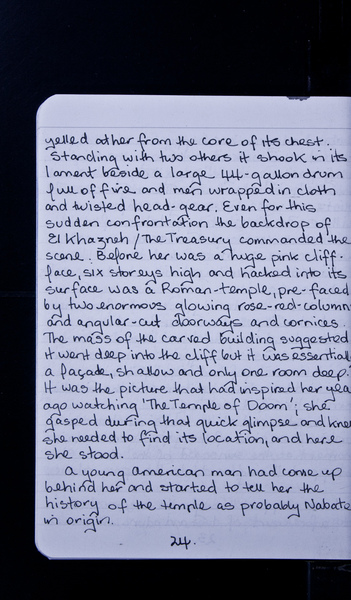 yelled at her from the core of its chest.
Standing with two others it shook in its
lament beside a large 44-gallon drum
full of fire and men wrapped in cloth
and twisted head-gear. Even for this
sudden confrontation the backdrop of
El Khazneh / The Treasury commanded the
scene. Before her was a huge pink cliff-
face, six storeys high and hacked into its
surface was a Roman-temple, pre-faced
by two enormous glowing rose-red-column
and angular-cut doorways and cornices.
The mass of the carved building suggested
it went deep into the cliff but it was essential
a façade, shallow and only one room deep.
It was the picture that had inspired her yea
ago watching 'The Temple of Doom'; she
gasped during that quick glimpse and knew
she needed to find its location, and here
she stood.
A young American man had come up
behind her and started to tell her the
history of the temple as probably Nabate
in origin.
24.